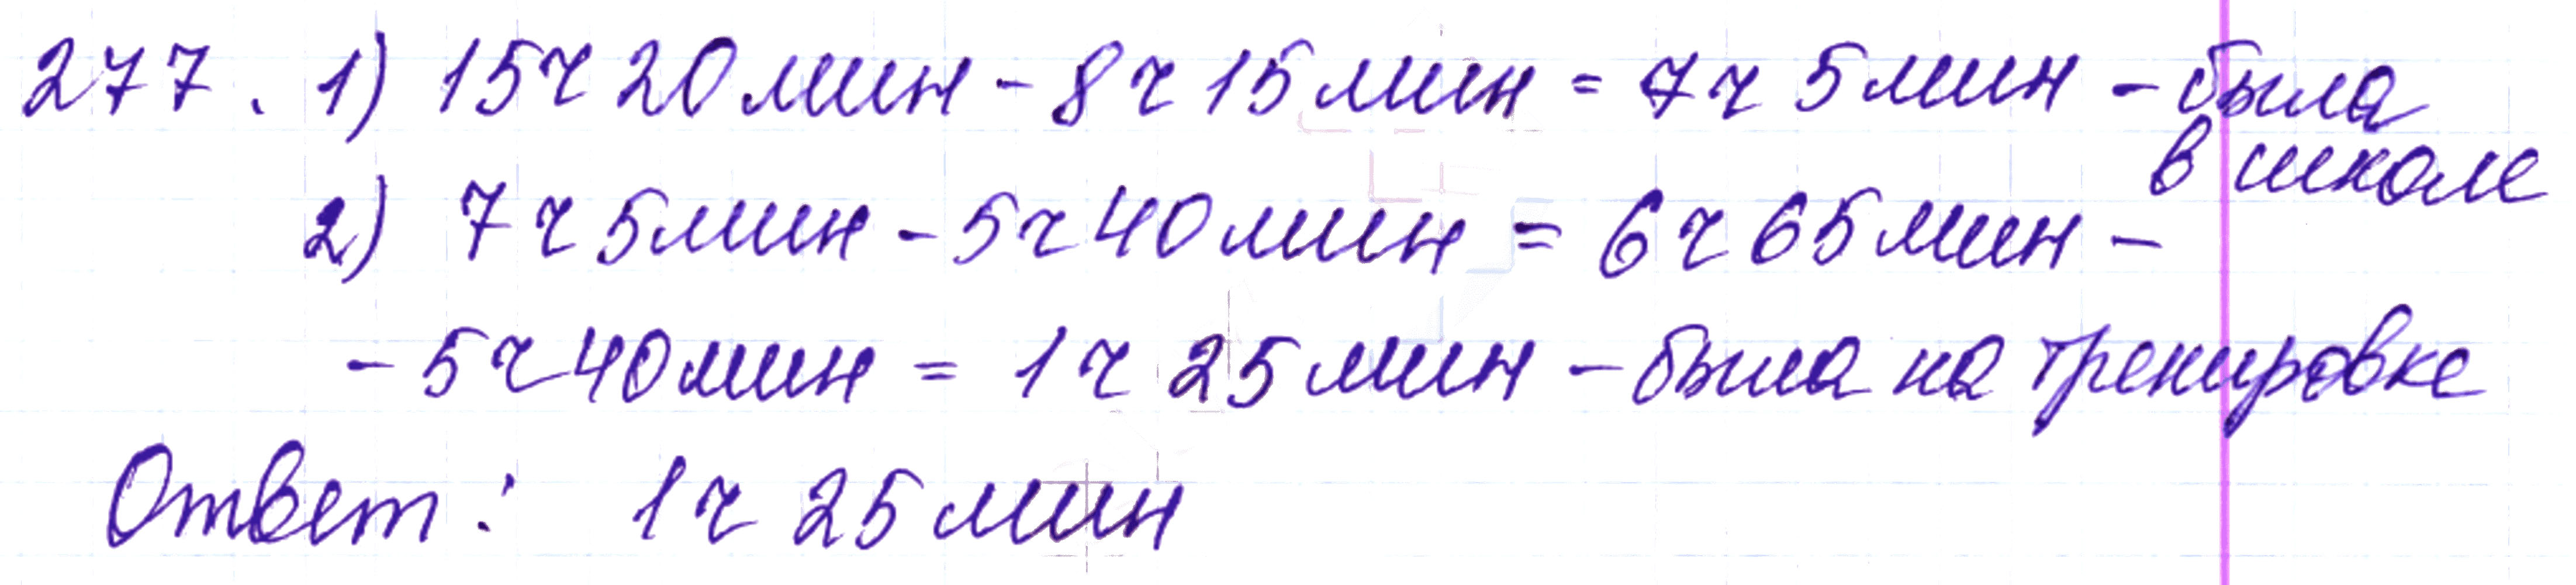 277. 1) 15ч 20мин - 8ч 15мин = 7ч 5мин - была
в школе
2) 7ч 5мин - 5ч 40мин = 6ч 65мин -
- 5ч 40мин = 1ч 25мин - была на тренировке
Ответ: 1ч 25мин